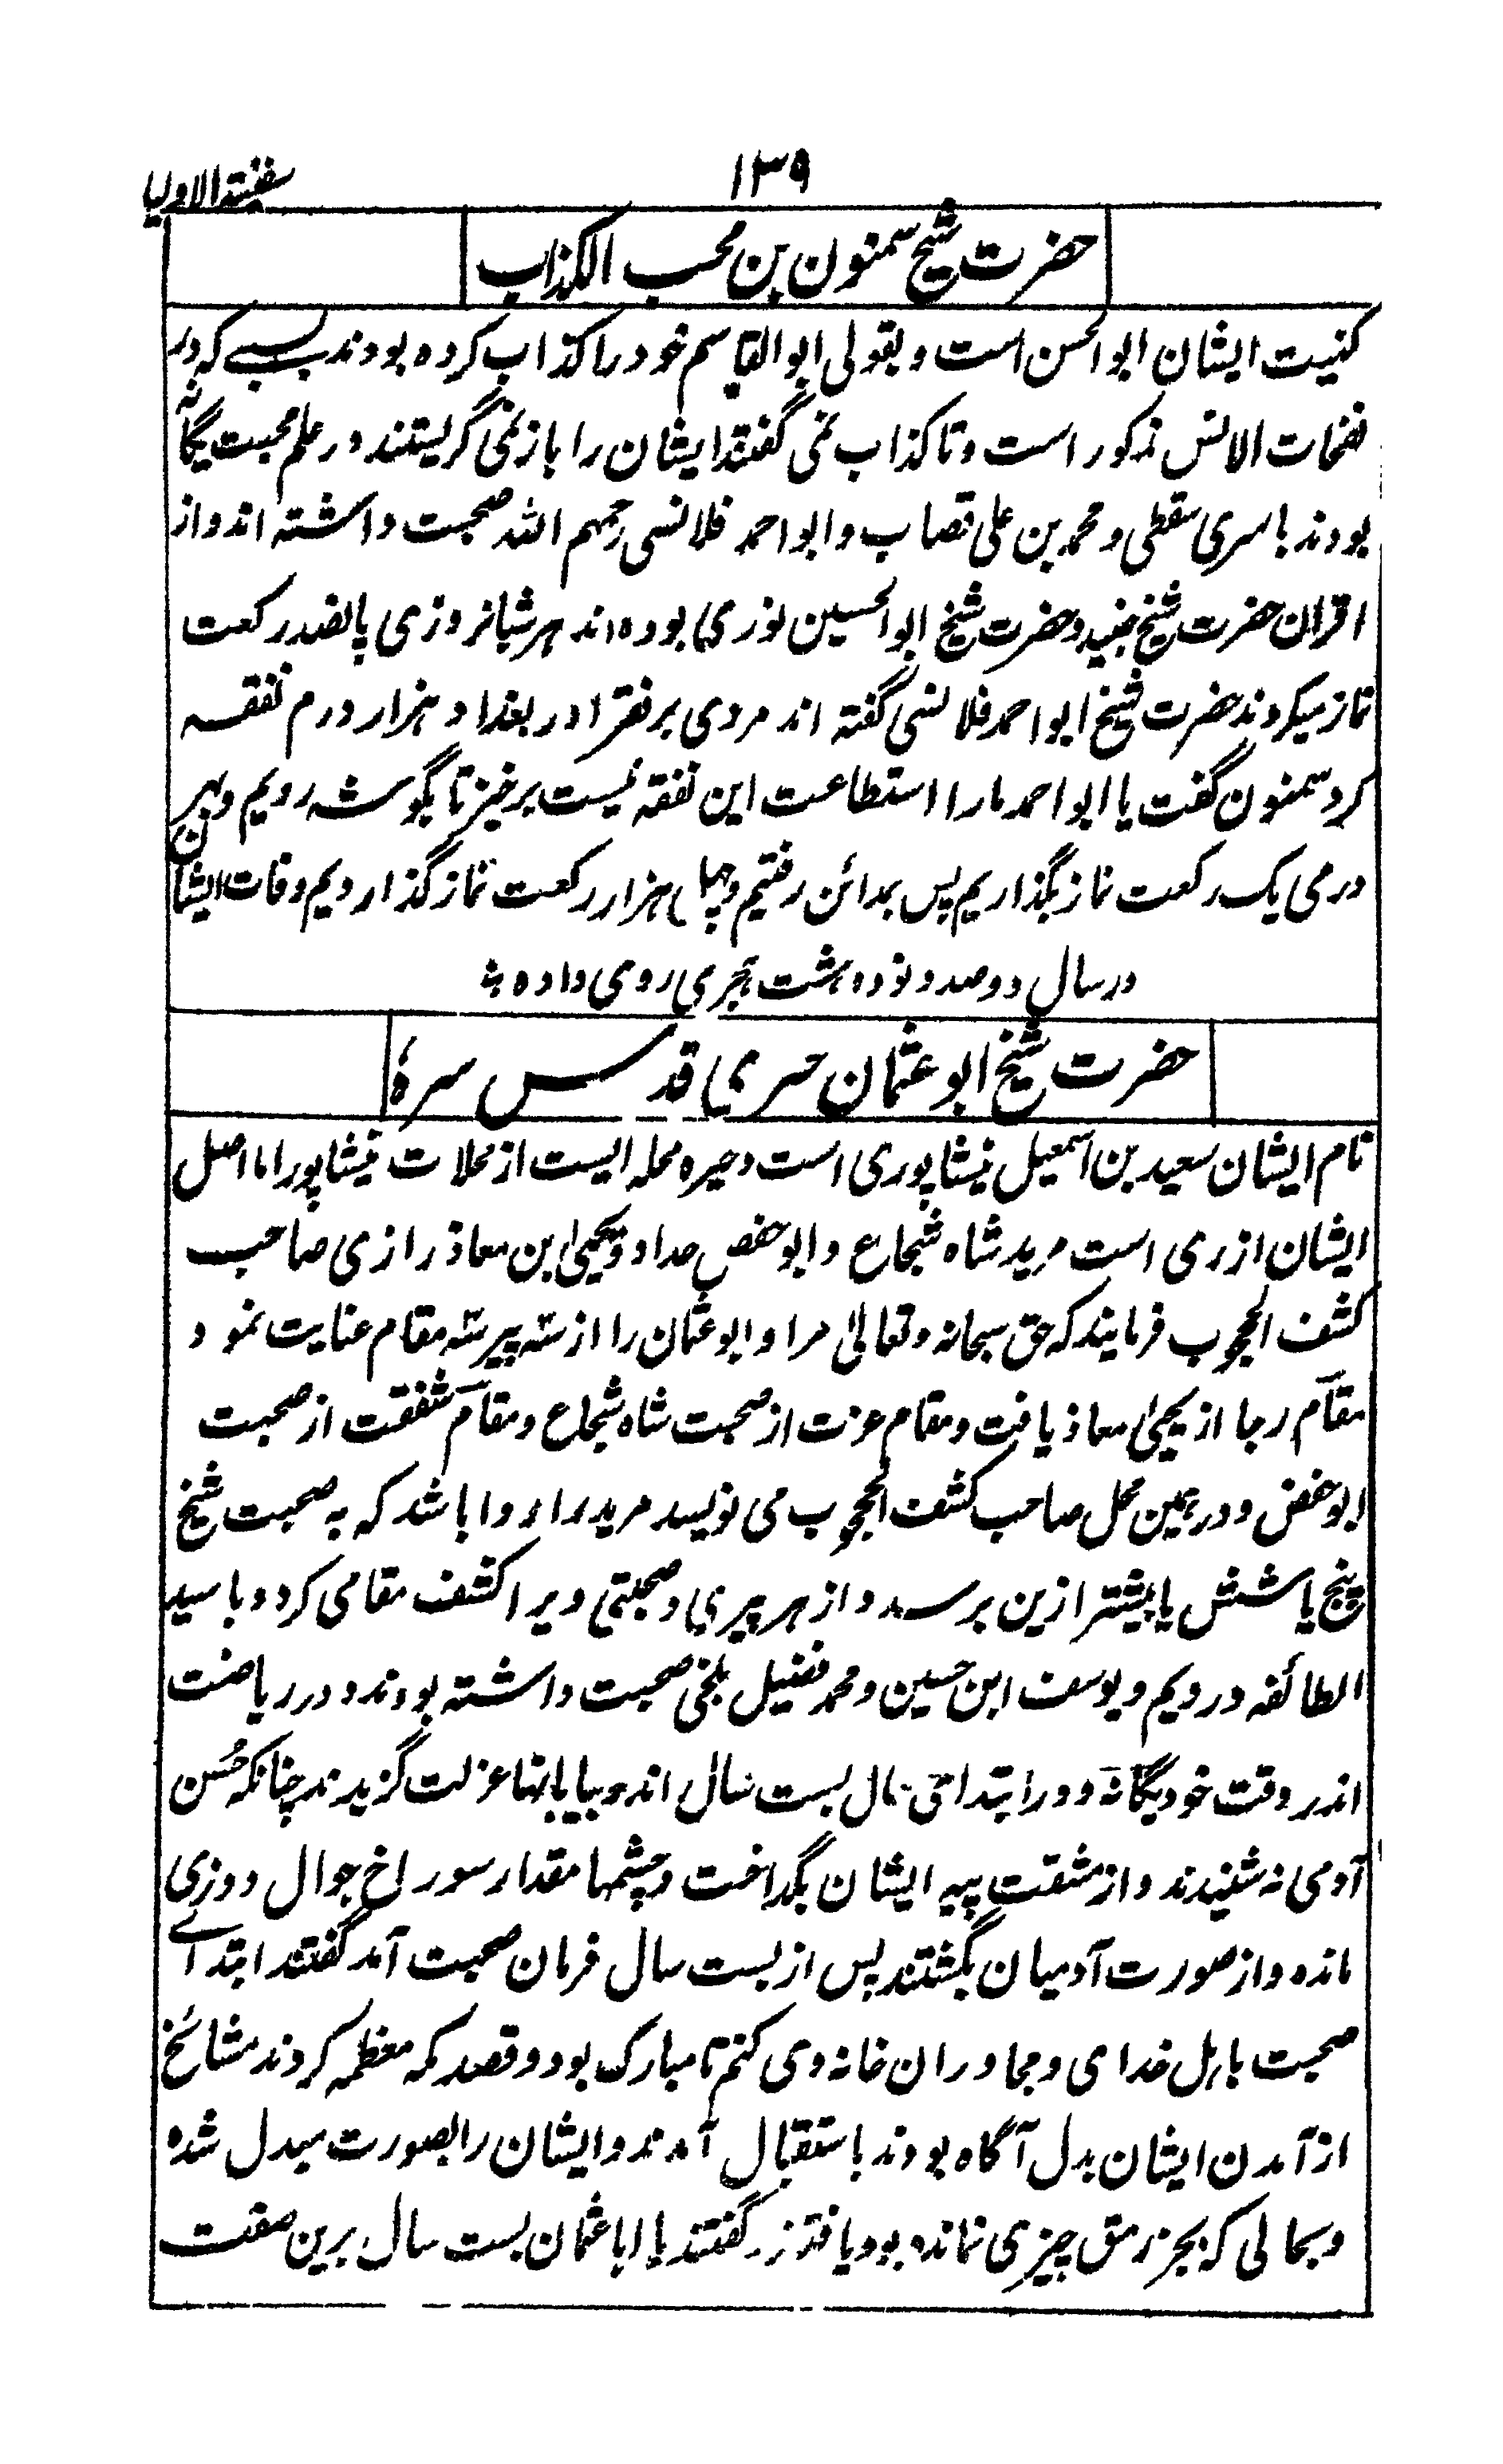 ۱۳۹
سفینة الاولیا
حضرت شیخ سمنون بن محب الکذاب
کنیت ایشان ابوالحسن است و بقولی ابوالقاسم خود را کذاب کرده بودند بسببے که در
نفحات الانس مذکور است و تا کذاب نمی گفتند ایشان را باز نمی گریستند در علم محبت یگانه
بودند با سری سقطی و محمد بن علی قصاب و ابو احمد قلانسی رحمهم الله صحبت داشته اند و از
اقران حضرت شیخ جنید و حضرت شیخ ابوالحسین نوری بوده اند هر شبانروزی پانصد رکعت
نماز میکردند حضرت شیخ ابو احمد قلانسی گفته اند مردی بر فقرا در بغداد هزار درم نفقه
کرد سمنون گفت یا ابو احمد ما را استطاعت این نفقه نیست برخیز تا بگوشه رویم و بهر
درمی یک رکعت نماز بگذاریم پس بمدائن رفتیم و چهل هزار رکعت نماز گذاردیم وفات ایشان
در سال دوصد و نود و هشت هجری روی داده
حضرت شیخ ابو عثمان حیری قدس سره
نام ایشان سعید بن اسمعیل نیشاپوری است و حیره محله ایست از محلات نیشاپور اما اصل
ایشان از ری است مرید شاه شجاع و ابو حفص حداد و یحییٰ بن معاذ رازی صاحب
کشف المحجوب فرمایند که حق سبحانه و تعالیٰ مرا و ابو عثمان را از سه پیر سه مقام عنایت نمود
مقام رجا از یحییٰ معاذ یافت و مقام عزت از صحبت شاه شجاع و مقام شفقت از صحبت
ابو حفص و در همین محل صاحب کشف المحجوب می نویسد مرید را روا باشد که به صحبت شیخ
پنج یا شش یا بیشتر ازین برسد و از هر پیری و صحبتی ویرا کشف مقامی کرد و با سید
الطائفه و رویم و یوسف ابن حسین و محمد فضیل بلخی صحبت داشته بودند و در ریاضت
اندر وقت خود یگانه و در ابتدائی حال بست سال اندر بیابانها عزلت گزیدند چنانکه حُسن
آدمی نه شنیدند و از مشقت پیه ایشان بگداخت و چشمها مقدار سوراخ جوال دوزی
مانده و از صورت آدمیان بگشتند پس از بست سال فرمان صحبت آمد گفتند ابتداے
صحبت باهل خدای و مجاوران خانه وی کنم تا مبارک بود و قصد مکه معظمه کردند مشائخ
از آمدن ایشان بدل آگاه بودند باستقبال آمدند و ایشان را بصورت مبدل شده
و بحالی که بجز رمق چیزی نمانده بود یافتند گفتند یا ابا عثمان بست سال برین صفت